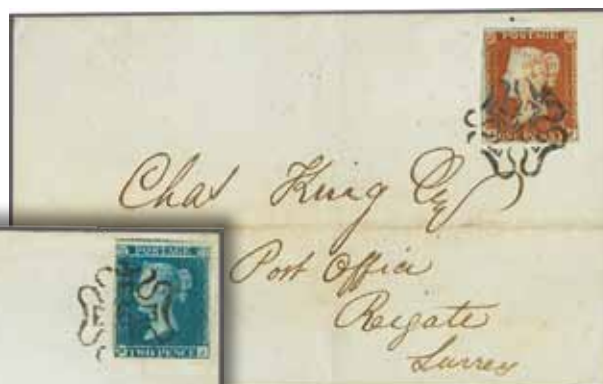 POSTAGE
Chas King Esq
Post Office
Reigate
Surrey
POSTAGE
TWO PENCE